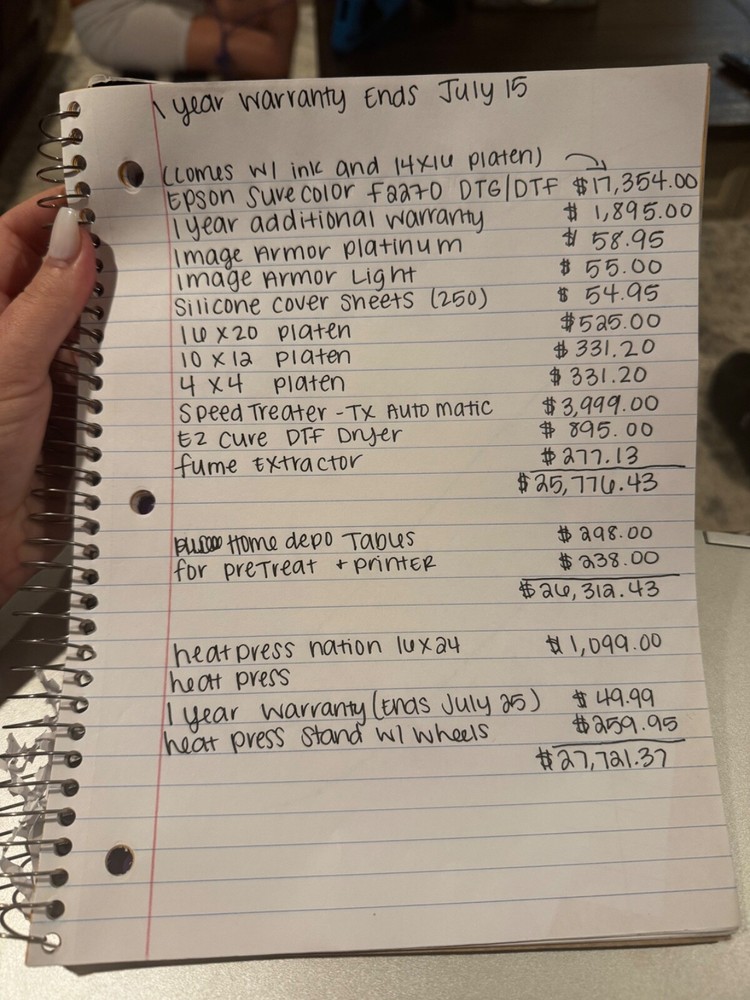 1 year warranty Ends July 15
(comes w/ ink and 14x16 platen)
Epson Surecolor F2270 DTG/DTF $17,354.00
1 year additional warranty $ 1,895.00
Image Armor Platinum $ 58.95
Image Armor Light $ 55.00
Silicone cover sheets (250) $ 54.95
16 x 20 platen $525.00
10 x 12 platen $331.20
4 x 4 platen $331.20
SpeedTreater-TX Automatic $3,999.00
EZ Cure DTF Dryer $ 895.00
fume Extractor $277.13
$25,776.43
Home depo Tables $298.00
for preTreat + printer $238.00
$26,312.43
heatpress nation 16x24 $1,099.00
heat press
1 year warranty (Ends July 25) $ 49.99
heat press stand w/ wheels $259.95
$27,721.37